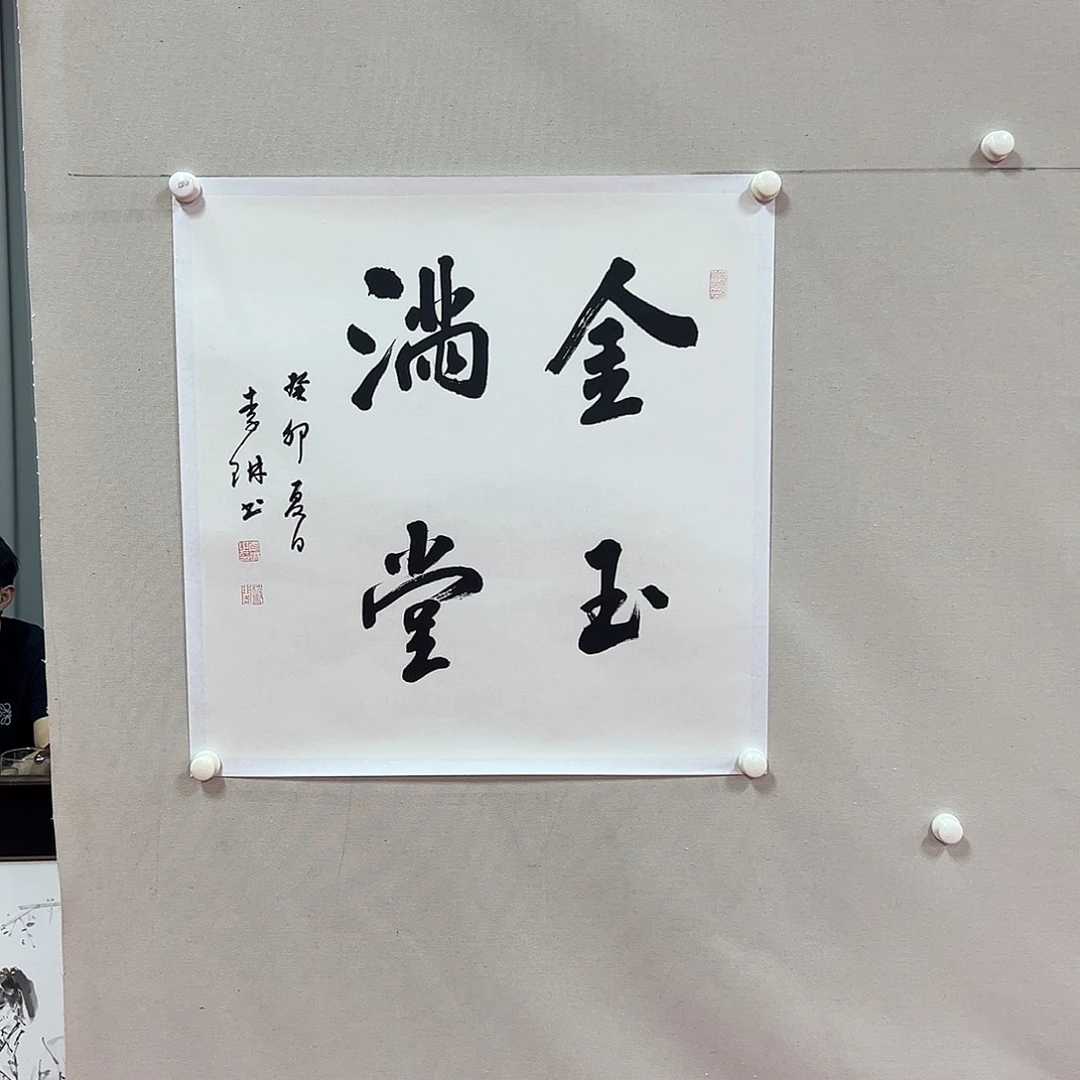 金玉
满堂
癸卯夏日
李琳书